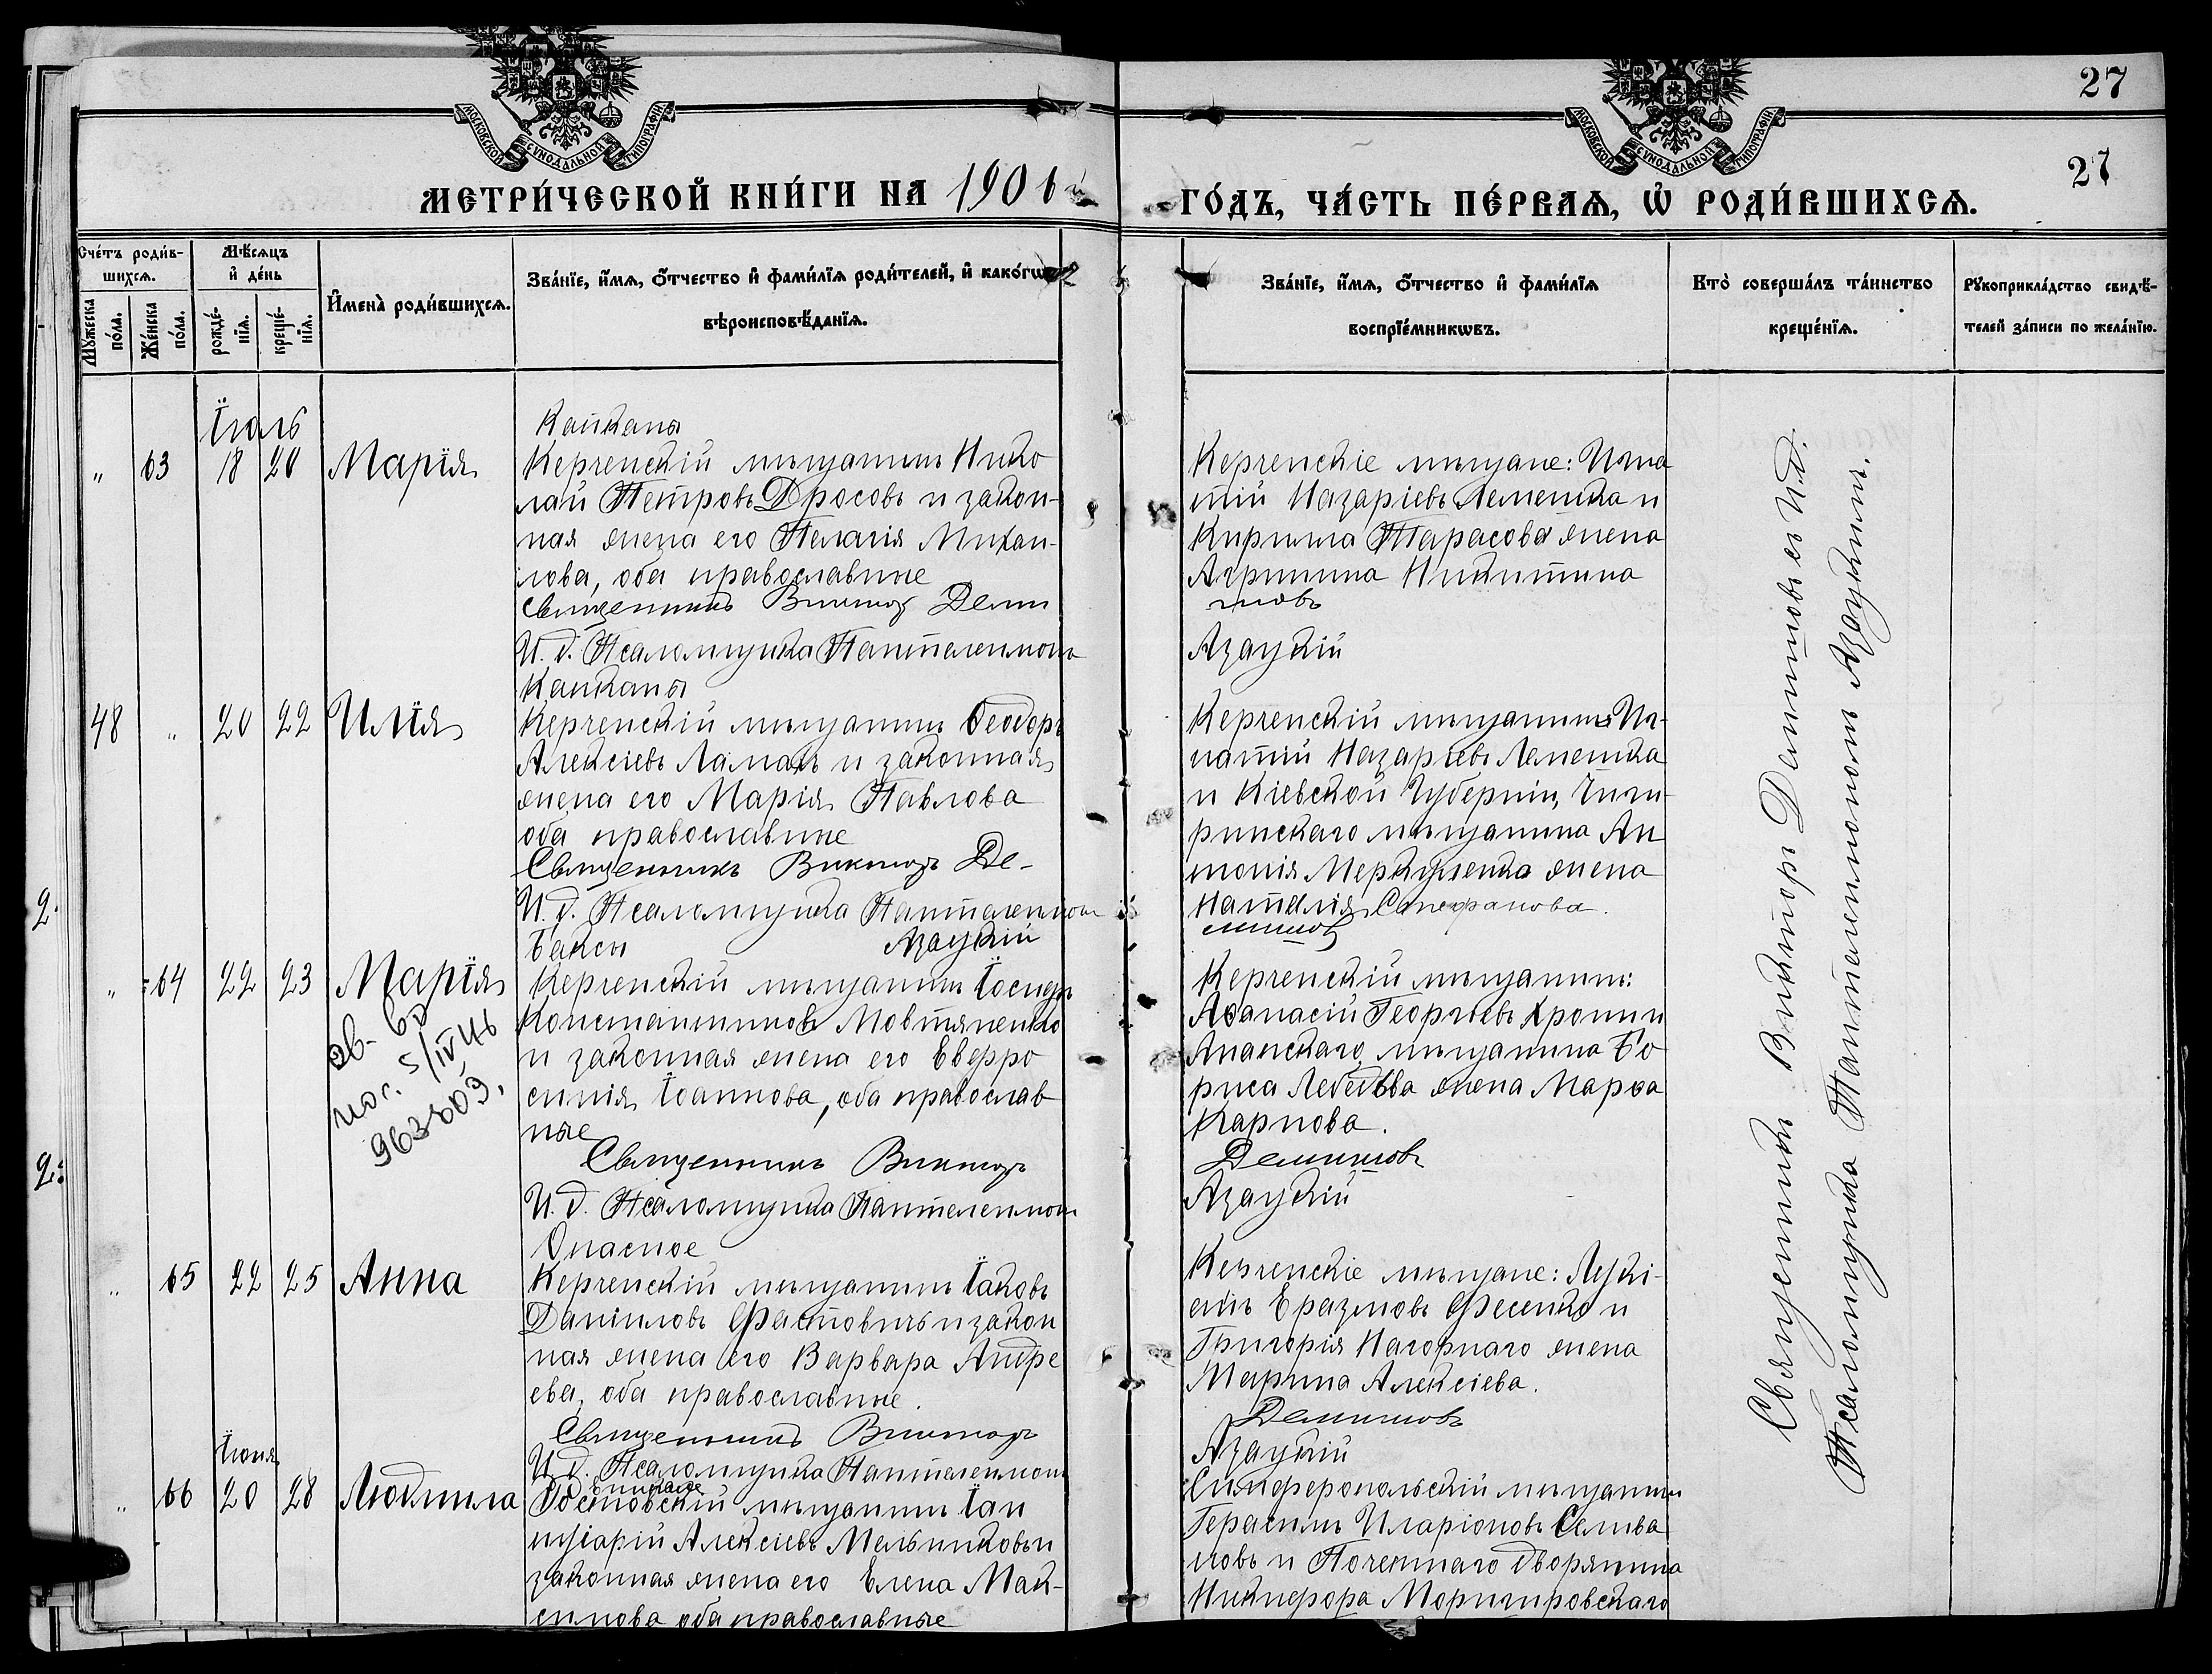 27
27
МОСКОВСКОЙ СУНОДАЛЬНОЙ ТИПОГРАФІИ
МОСКОВСКОЙ СУНОДАЛЬНОЙ ТИПОГРАФІИ
МЕТРИ́ЧЕСКОЙ КНИ́ГИ НА 1906 й
ГО́ДЪ, ЧА́СТЬ ПЕ́РВАѦ, Ѡ҆ РОДИ́ВШИХСѦ.
Сче́тъ роди́в-
шихсѧ.
Мꙋ́жеска
по́ла.
Же́нска
по́ла.
Мѣ́сѧцъ
и҆ де́нь
рожде́-
нїѧ.
креще́-
нїѧ.
И҆мена̀ роди́вшихсѧ.
Зва́нїе, и҆́мѧ, ѻ҆́тчество и҆ фами́лїѧ роди́телей, и҆ како́гѡ
вѣроисповѣ́данїѧ.
Зва́нїе, и҆́мѧ, ѻ҆́тчество и҆ фами́лїѧ
воспрїе́мникѡвъ.
Кто̀ соверша́лъ та́инство
креще́нїѧ.
Рꙋкоприкла́дство свидѣ́-
телей за́писи по жела́нїю.
Іюль
" 63 18 20 Марія
Капканы
Керченскій мѣщанинъ Нико
лай Петровъ Дросовъ и закон-
ная жена его Пелагія Михаи-
лова, оба православные
Священникъ Викторъ Деми
И. д. Псаломщика Пантелеимонъ
Керченскіе мѣщане: Игна
тій Назаріевъ Лемешка и
Кирилла Тарасова жена
Агрипина Никитина
Азауцкій
48 " 20 22 Илія
Капканы
Керченскій мѣщанинъ Ѳеодоръ
Алексіевъ Ламахъ и законная
жена его Марія Павлова
оба православные
Священникъ Викторъ Де-
И. д. Псаломщика Пантелеимонъ
Азауцкій
Керченскій мѣщанинъ Иг-
натій Назаріевъ Лемешка
и Кіевской Губерніи, Чиги-
ринскаго мѣщанина Ан
тонія Меркуленка жена
Наталія Стефанова.
2.
" 64 22 23 Марія
Баксы
Керченскій мѣщанинъ Іосифъ
Константиновъ Мовтяненко
и законная жена его Евфро
синія Іоаннова, оба православ
ные
Священникъ Викторъ
И. д. Псаломщика Пантелеимонъ
Керченскій мѣщанинъ:
Аѳанасій Георгіевъ Хронин
Анапскаго мѣщанина Бо-
риса Лебедева жена Марѳа
Карпова.
Демишовъ
Азауцкій
2.
" 65 22 25 Анна
Опасное
Керченскій мѣщанинъ Іаковъ
Даніиловъ Фастовичъ и закон
ная жена его Варвара Андре
ева, оба православные.
Священникъ Викторъ
И. д. Псаломщика Пантелеимонъ
Керченскіе мѣщане: Лукі-
анъ Еразмовъ Фесенко и
Григорія Нагорнаго жена
Марина Алексіева.
Демишовъ
Азауцкій
Іюня
" 66 20 28 Людмила
Ростовскій мѣщанинъ Іан
нуарій Алексіевъ Мельниковъ и
законная жена его Елена Мак-
симова оба православные
Симферопольскій мѣщанинъ
Герасимъ Иларіоновъ Селива
новъ и Почетнаго дворянина
Никифора Моригировскаго
Священникъ Викторъ Демишовъ съ И.д.
Псаломщика Пантелеимономъ Азауцкимъ.